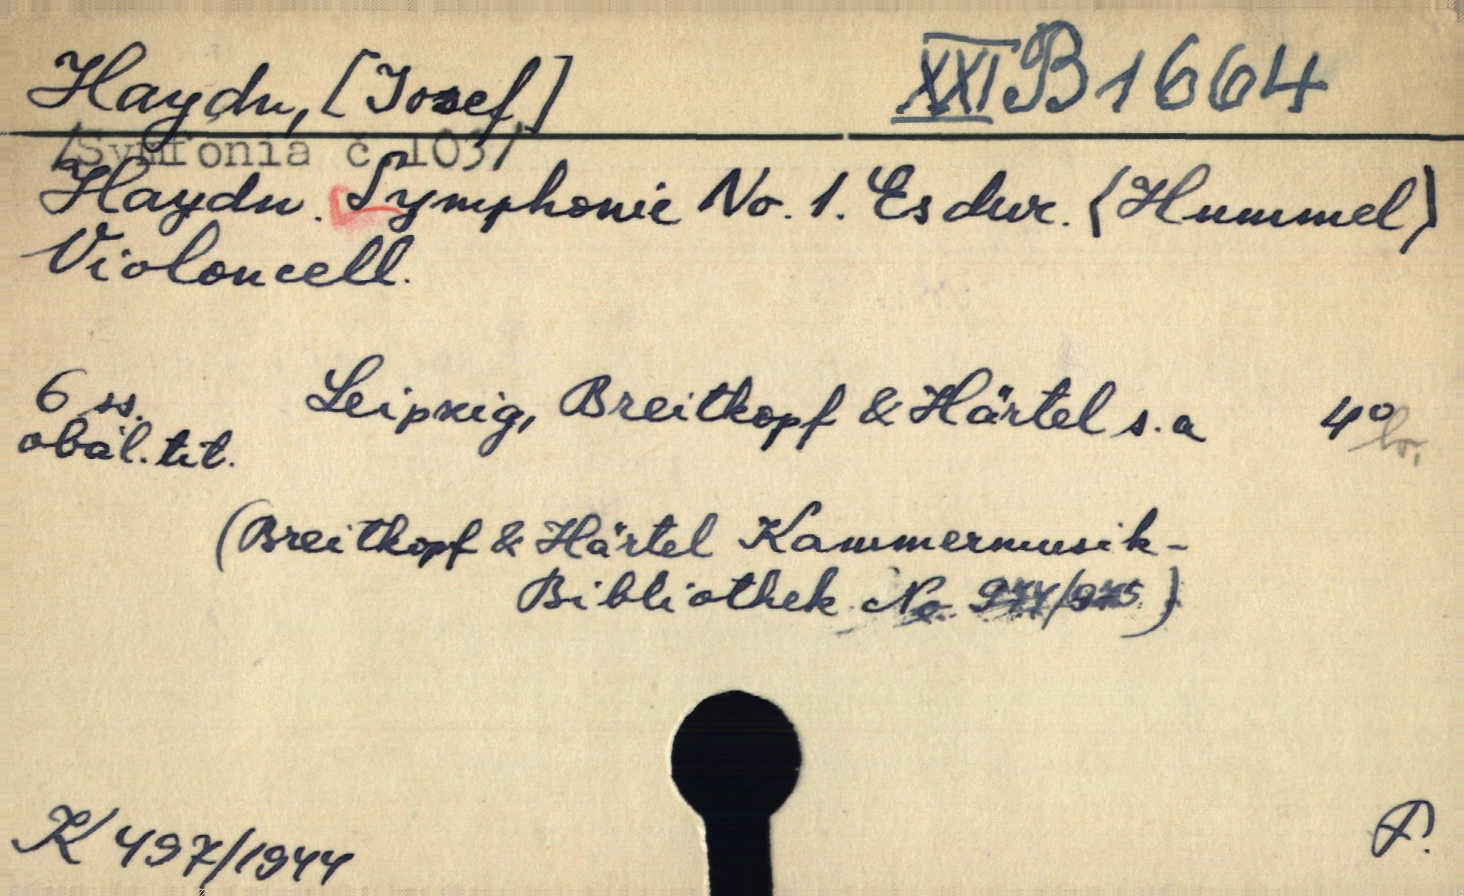 Haydn, [Josef] XXI B 1664
/Symfonia č. 103/
Haydn. Symphonie No. 1. Es dur. (Hummel)
Violoncell.
6 ss. Leipzig, Breitkopf & Härtel s. a 4° br.
obál. tit.
(Breitkopf & Härtel Kammermusik-
Bibliothek No. 974/975)
K 497/1944 P.